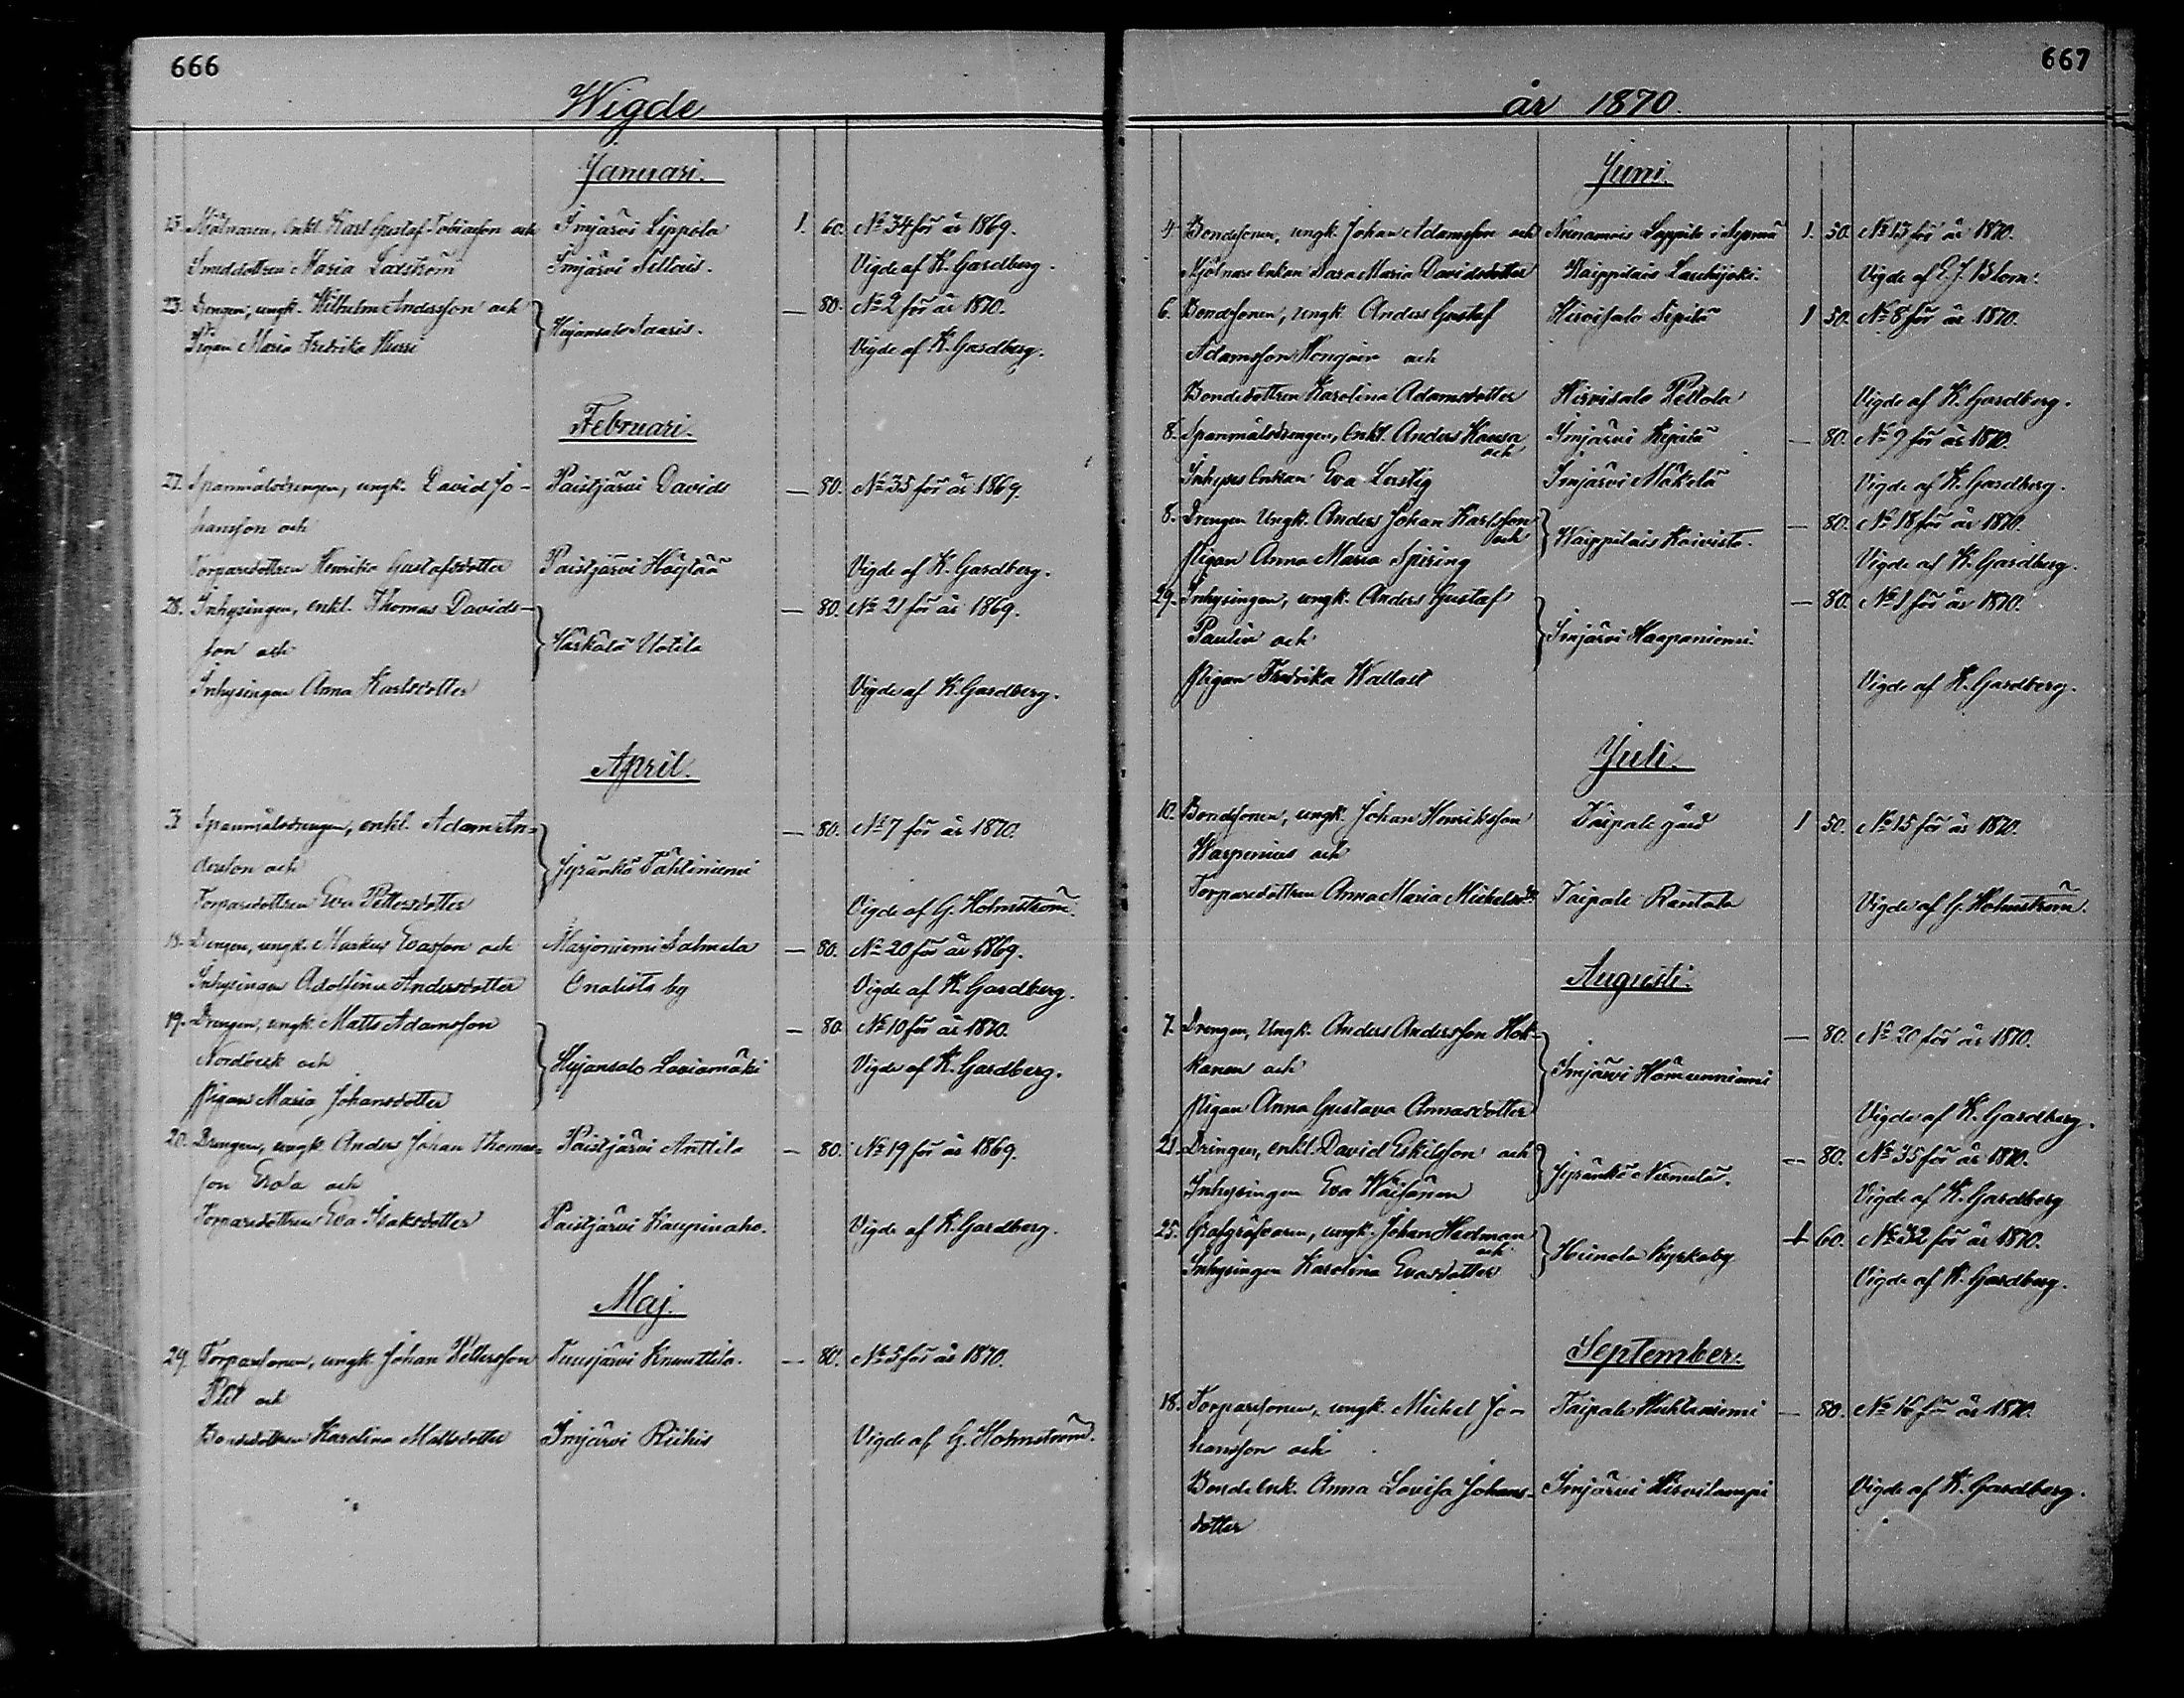 666
Wigde
Januari.
15. Mjölnaren, Enkl. Karl Gustaf Tobiasson och Imjärvi Lippola 1. 60. No 34 för år 1869.
Smeddottren Maria Laxström Imjärvi Sillois. Vigde af K. Gardberg.
23. Drengen, ungk. Wilhelm Andersson och Heijansalo Saaris. — 80. No 2 för år 1870.
Pigan Maria Fredrika Kurri Vigde af K. Gardberg.
Februari.
27. Spanmålsdrengen, ungk. David Jo- Paistjärvi Davids — 80. No 35 för år 1869.
hansson och
Torparedottren Henrika Gustafsdotter Paistjärvi Vigde af K. Gardberg.
28. Inhysingen, enkl. Thomas Davids- — 80. No 21 för år 1869.
son och Härkälä Uotila
Inhysingen Anna Karlsdotter Vigde af K. Gardberg.
April.
3. Spanmålsdrengen, enkl. Adam An- — 80. No 7 för år 1870.
dersson och Jyränkö Tähtiniemi
Torparedottren Eva Pettersdotter Vigde af G. Holmström.
18. Drengen, ungk. Markus Evasson och Marjoniemi Salmela — 80. No 20 för år 1869.
Inhysingen Adolfina Andersdotter Onalista by Vigde af K. Gardberg.
19. Drengen, ungk. Matts Adamsson — 80. No 10 för år 1870.
Nordbeck och Heijansalo Laviamäki Vigde af K. Gardberg.
Pigan Maria Johansdotter
20. Drengen, ungk. Anders Johan Thomas- Paistjärvi Anttila — 80. No 19 för år 1869.
son Erola och
Torparedottren Eva Isaksdotter Paistjärvi Kaupinaho. Vigde af K. Gardberg.
Maj.
29. Torparsonen, ungk. Johan Pettersson Tuusjärvi Knuuttila. — 80. No 5 för år 1870.
och
Bondedottren Karolina Mattsdotter Imjärvi Riihis Vigde af G. Holmström.
667
år 1870.
Juni.
4. Bondesonen, ungk. Johan Adamsson och Seppälä i 1. 50. No 13 för år 1870.
Mjölnare Enkan Sara Maria Davidsdotter Kaippilais Lauhijoki. Vigde af E. J. Blom.
6. Bondesonen, ungk. Anders Gustaf Hirvisalo Sipilä 1 50. No 8 för år 1870.
Adamsson och
Bondedottren Karolina Adamsdotter Hirvisalo Peltola Vigde af K. Gardberg.
8. Spanmålsdrengen, Enkl. Anders Kausa Imjärvi — 80. No 9 för år 1870.
och
Inhyses Enkan Eva Lustig Imjärvi Mäkelä Vigde af K. Gardberg.
8. Drengen Ungk. Anders Johan Karlsson — 80. No 18 för år 1870.
och Kaippilais Koivisto.
Pigan Anna Maria Spiring Vigde af K. Gardberg.
29. Inhysingen, ungk. Anders Gustaf — 80. No 1 för år 1870.
Paulin och Imjärvi Haapaniemi
Pigan Fredrika Wallast Vigde af K. Gardberg.
Juli.
10. Bondesonen, ungk. Johan Henriksson Taipale gård 1 50. No 15 för år 1870.
Warpenius och
Torparedottren Anna Maria Michelsdr Taipale Rantala Vigde af G. Holmström.
Augusti.
7. Drengen, Ungk. Anders Andersson Hok- — 80. No 20 för år 1870.
kanen och Imjärvi Hämeenniemi
Pigan Anna Gustava Annasdotter Vigde af K. Gardberg.
21. Drengen, enkl. David Eskilsson och Jyränkö Niemelä. — 80. No 35 för år 1870.
Inhysingen Eva Väisänen Vigde af K. Gardberg
25. Grafgräfvaren, ungk. Johan Hedman 1 60. No 32 för år 1870.
och Heinola Kyrkoby
Inhysingen Karolina Evasdotter Vigde af K. Gardberg.
September.
18. Torparsonen, ungk. Michel Jo- Taipale Huhtaniemi — 80. No 16 för år 1870.
hansson och
Bonde Enk. Anna Lovisa Johans- Imjärvi Hirvilampi Vigde af K. Gardberg.
dotter